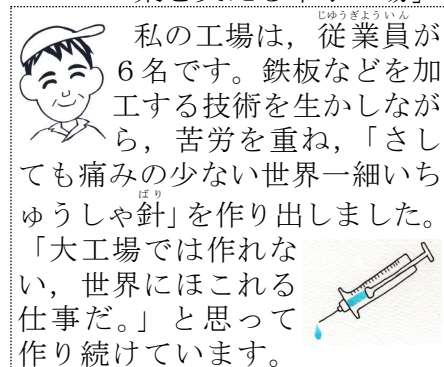 私の工場は，従業員が
６名です。鉄板などを加
工する技術を生かしなが
ら，苦労を重ね，「さし
ても痛みの少ない世界一細いち
ゅうしゃ針」を作り出しました。
「大工場では作れな
い，世界にほこれる
仕事だ。」と思って
作り続けています。